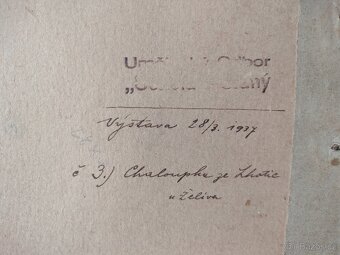 Umělecký Odbor
Výstava 28/3. 1937
č 3.) Chaloupka ze Lhotic
u Želiva